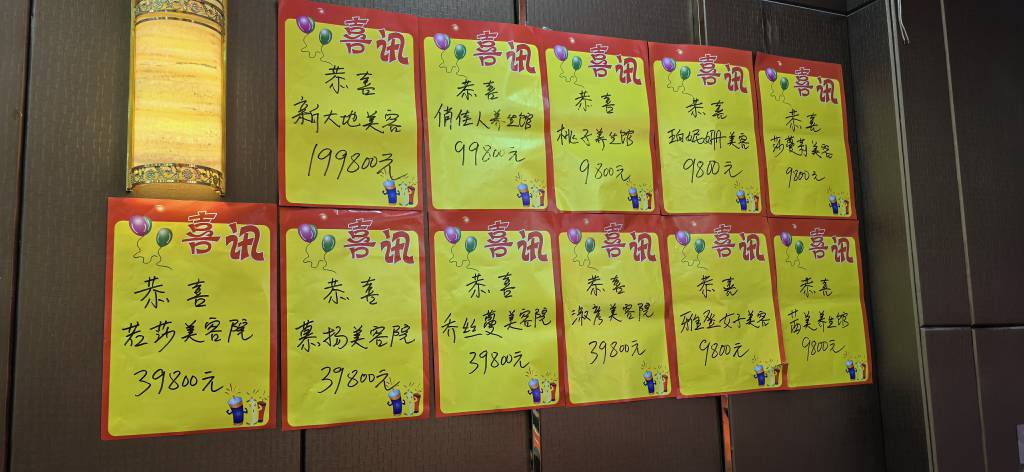 喜讯
恭喜
新大地美容
199800元
喜讯
恭喜
俏佳人养生馆
99800元
喜讯
恭喜
桃子养生馆
9800元
喜讯
恭喜
珀妮姗美容
9800元
喜讯
恭喜
莎蔓莉美容
9800元
喜讯
恭喜
若莎美容院
39800元
喜讯
恭喜
慕扬美容院
39800元
喜讯
恭喜
乔丝蔓美容院
39800元
喜讯
恭喜
淑彦美容院
39800元
喜讯
恭喜
女子美容
9800元
喜讯
恭喜
茜美养生馆
9800元